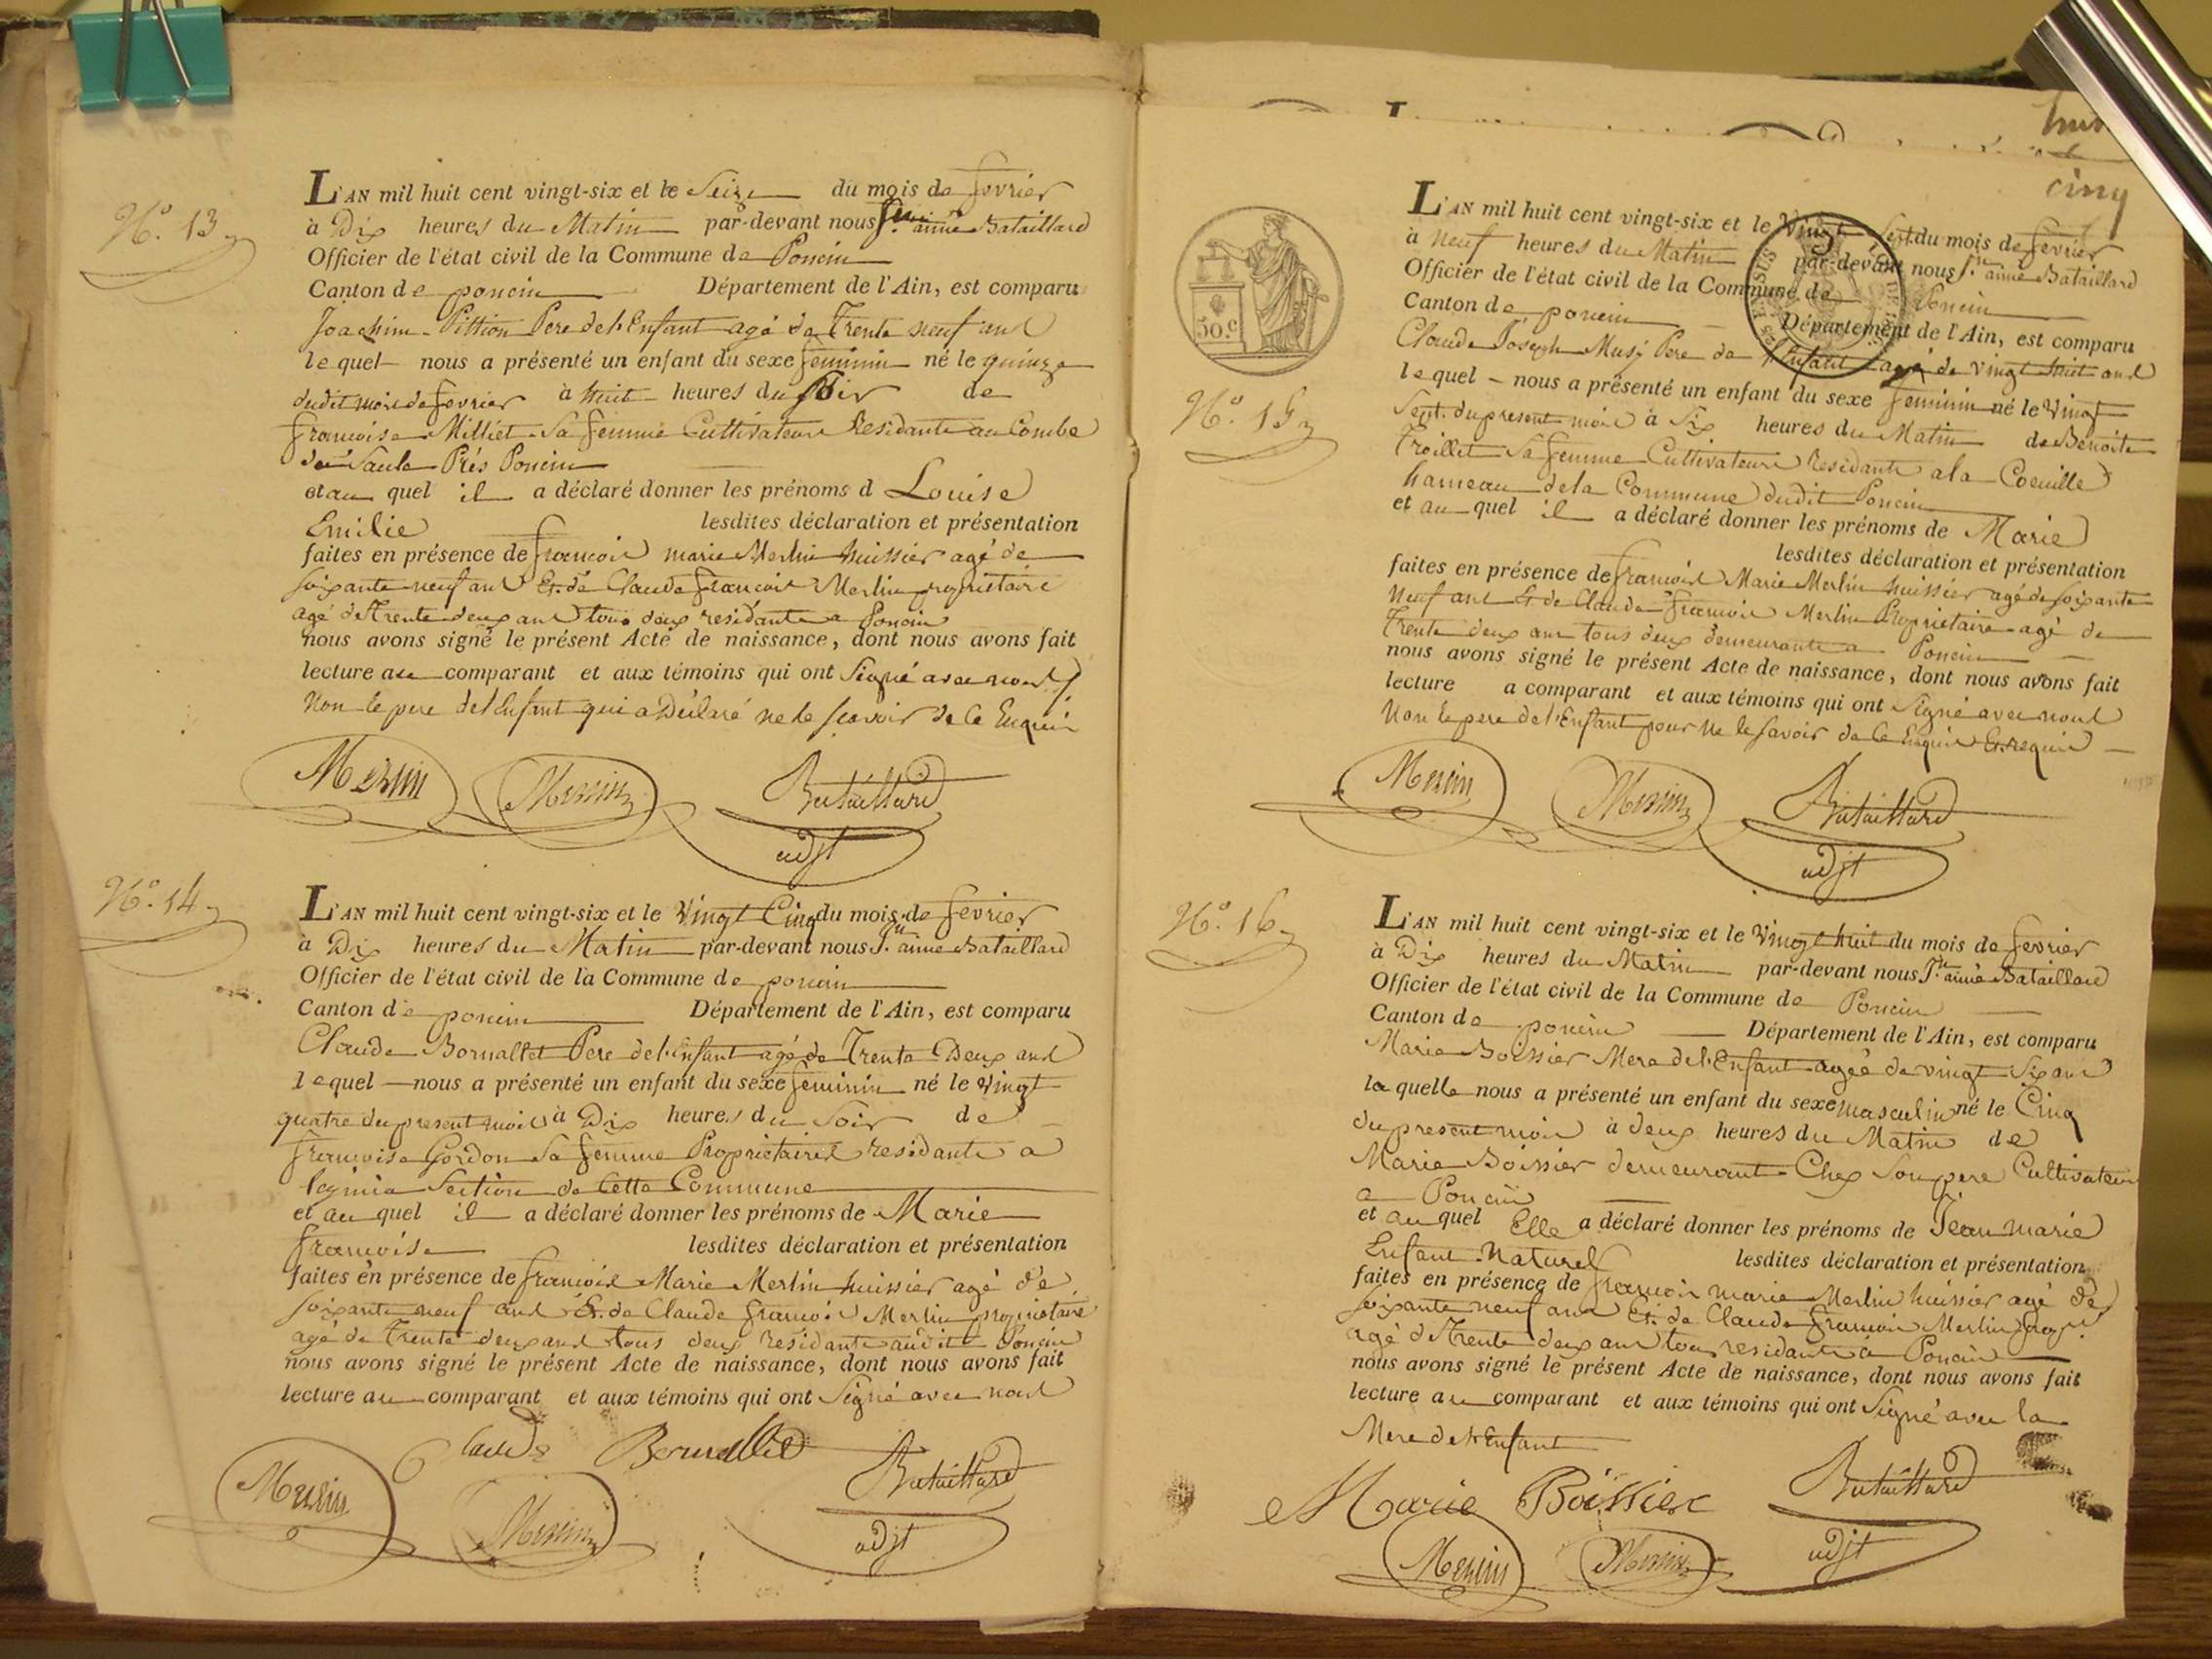 N.º 13
L'AN mil huit cent vingt-six et le Seize du mois de fevrier
à Dix heures du Matin par-devant nous aimé Bataillard
Officier de l'état civil de la Commune de Poncin
Canton de poncin Département de l'Ain, est comparu
Joachim Pittion Pere de l'Enfant agé de Trente neuf ans
lequel nous a présenté un enfant du sexe feminin né le quinze
dudit mois de fevrier à huit heures du soir de
francoise Milliet Sa femme Cultivateurs Residants au Combe
Saule Prés Poncin
et au quel il a déclaré donner les prénoms d Louise
Emilie lesdites déclaration et présentation
faites en présence de francois marie Merlin huissier agé de
soixante neuf ans Et de Claude francois Merlin proprietaire
agé de Trente deux ans tous deux residants a Poncin
nous avons signé le présent Acte de naissance, dont nous avons fait
lecture au comparant et aux témoins qui ont Signé avec nous
Non le pere de l'Enfant qui a Déclaré ne le scavoir de ce Enquis
Merlin Merlin Bataillard
adjt
N.º 14
L'AN mil huit cent vingt-six et le Vingt Cinq du mois de fevrier
à Dix heures du Matin par-devant nous Jn aimé Bataillard
Officier de l'état civil de la Commune de poncin
Canton de poncin Département de l'Ain, est comparu
Claude Bornallet Pere de l'enfant agé de Trente Deux ans
lequel nous a présenté un enfant du sexe feminin né le vingt
quatre du present mois à Dix heures du Soir de
francoise Gordon Sa femme Proprietaires residants a
Section de Cette Commune
et au quel il a déclaré donner les prénoms de Marie
francoise lesdites déclaration et présentation
faites en présence de francois Marie Merlin huissier agé de
soixante neuf ans Et de Claude francois Merlin proprietaire
agé de Trente deux ans tous deux residants audit Poncin
nous avons signé le présent Acte de naissance, dont nous avons fait
lecture au comparant et aux témoins qui ont Signé avec nous
Claude Bornallet
Merlin Merlin Bataillard
adjt
cinq
50.c
N.º 15
L'AN mil huit cent vingt-six et le Vingt Sept du mois de fevrier
à neuf heures du Matin par-devant nous Jn aimé Bataillard
Officier de l'état civil de la Commune de Poncin
Canton de poncin Département de l'Ain, est comparu
Claude Joseph Musy Pere de l'Enfant agé de vingt huit ans
lequel nous a présenté un enfant du sexe feminin né le Vingt
Sept du present mois à Six heures du Matin de Benoite
Troillet Sa femme Cultivateurs residants a la Coeuille
hameau de la Commune dudit Poncin
et au quel il a déclaré donner les prénoms de Marie
lesdites déclaration et présentation
faites en présence de francois Marie Merlin huissier agé de soixante
neuf ans Et de Claude francois Merlin Proprietaire agé de
Trente deux ans tous deux demeurants a Poncin
nous avons signé le présent Acte de naissance, dont nous avons fait
lecture a comparant et aux témoins qui ont Signé avec nous
Non le pere de l'Enfant pour ne le savoir de ce Enquis Et requis
Merlin Merlin Bataillard
adjt
N.º 16
L'AN mil huit cent vingt-six et le Vingt huit du mois de fevrier
à Dix heures du Matin par-devant nous Jn aimé Bataillard
Officier de l'état civil de la Commune de Poncin
Canton de poncin Département de l'Ain, est comparu
Marie Boissier Mere de l'Enfant agée de vingt Six ans
laquelle nous a présenté un enfant du sexe masculin né le Cinq
du present mois à deux heures du Matin de
Marie Boissier demeurant Chez Son pere Cultivateur
a Poncin
et au quel Elle a déclaré donner les prénoms de Jean marie
Enfant Naturel lesdites déclaration et présentation
faites en présence de francois marie Merlin huissier agé de
soixante neuf ans Et de Claude francois Merlin propre
agé de Trente deux ans tous residants a Poncin
nous avons signé le présent Acte de naissance, dont nous avons fait
lecture au comparant et aux témoins qui ont Signé avec la
Mere de l'Enfant
Marie Boissier Bataillard
Merlin Merlin adjt